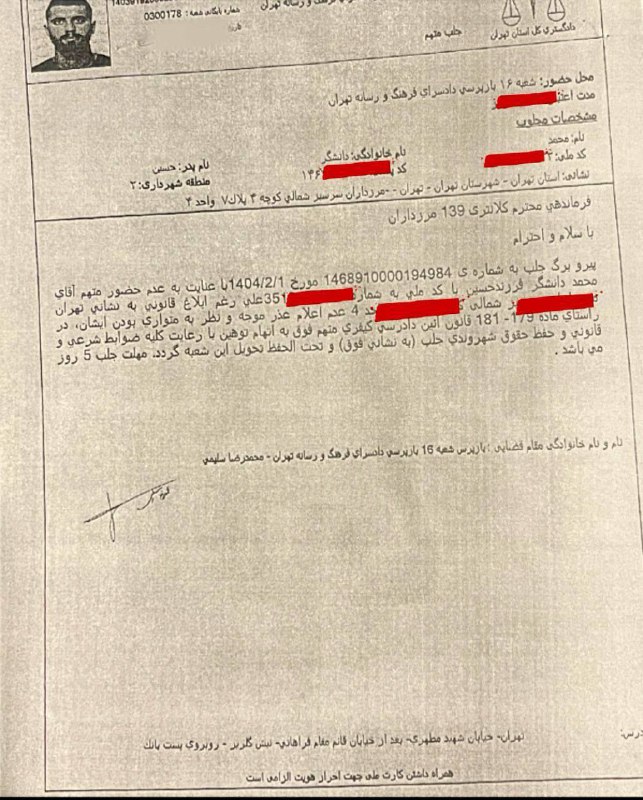 شماره بایگانی شعبه : 0300178
فرهنگ و رسانه تهران
دادگستری کل استان تهران
جلب متهم
محل حضور: شعبه ۱۶ بازپرسی دادسرای فرهنگ و رسانه تهران
مدت
مشخصات مجلوب
نام: محمد
نام خانوادگی: دانشگر
نام پدر: حسین
کد ملی:
منطقه شهرداری: ۲
نشانی: استان تهران - شهرستان تهران - تهران - -مرزداران سرسبز شمالی کوچه ۴ پلاک۷ واحد ۴
فرماندهی محترم کلانتری 139 مرزداران
با سلام و احترام
پیرو برگ جلب به شماره ی 1468910000194984 مورخ 1404/2/1با عنایت به عدم حضور متهم آقای
محمد دانشگر فرزندحسین با کد ملی به شماره 351علی رغم ابلاغ قانونی به نشانی تهران
شمالی 4 عدم اعلام عذر موجه و نظر به متواری بودن ایشان، در
راستای ماده 179- 181 قانون آئین دادرسی کیفری متهم فوق به اتهام توهین با رعایت کلیه ضوابط شرعی و
قانونی و حفظ حقوق شهروندی جلب (به نشانی فوق) و تحت الحفظ تحویل این شعبه گردد. مهلت جلب 5 روز
می باشد .
نام و نام خانوادگی مقام قضایی : بازپرس شعبه 16 بازپرسی دادسرای فرهنگ و رسانه تهران - محمدرضا سلیمی
تهران- خیابان شهید مطهری- بعد از خیابان قائم مقام فراهانی- نبش گلریز - روبروی پست بانک
همراه داشتن کارت ملی جهت احراز هویت الزامی است